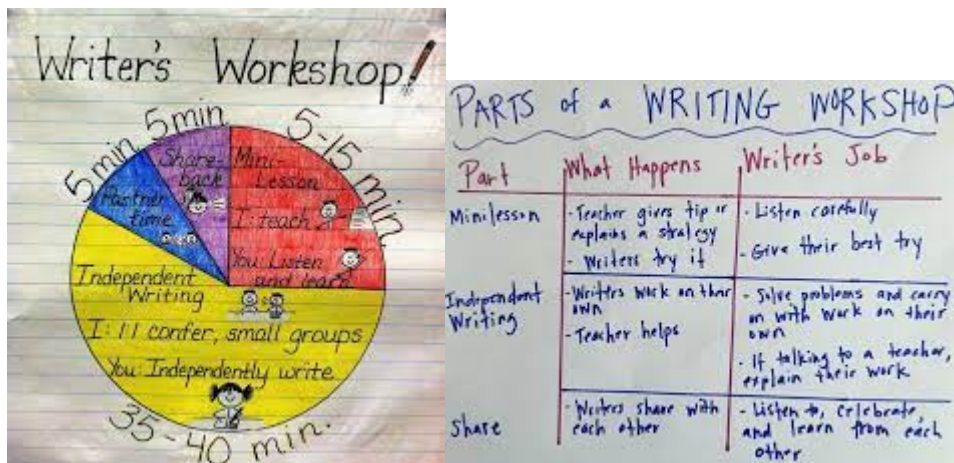 Writer's Workshop!
5 min
5 min
5-15 min
Share-
back
Mini-
Lesson
I: teach
You: Listen
and learn
Partner
time
Independent
Writing
I: 1:1 confer, small groups
You: Independently write
35-40 min.
PARTS of a WRITING WORKSHOP
Part
What Happens
Writer's Job
Minilesson
- Teacher gives tip or
explains a strategy
- Writers try it
- Listen carefully
- Give their best try
Independent
Writing
- Writers work on their
own
- Teacher helps
- Solve problems and carry
on with work on their
own
- If talking to a teacher,
explain their work
Share
- Writers share with
each other
- Listen to, celebrate,
and learn from each
other